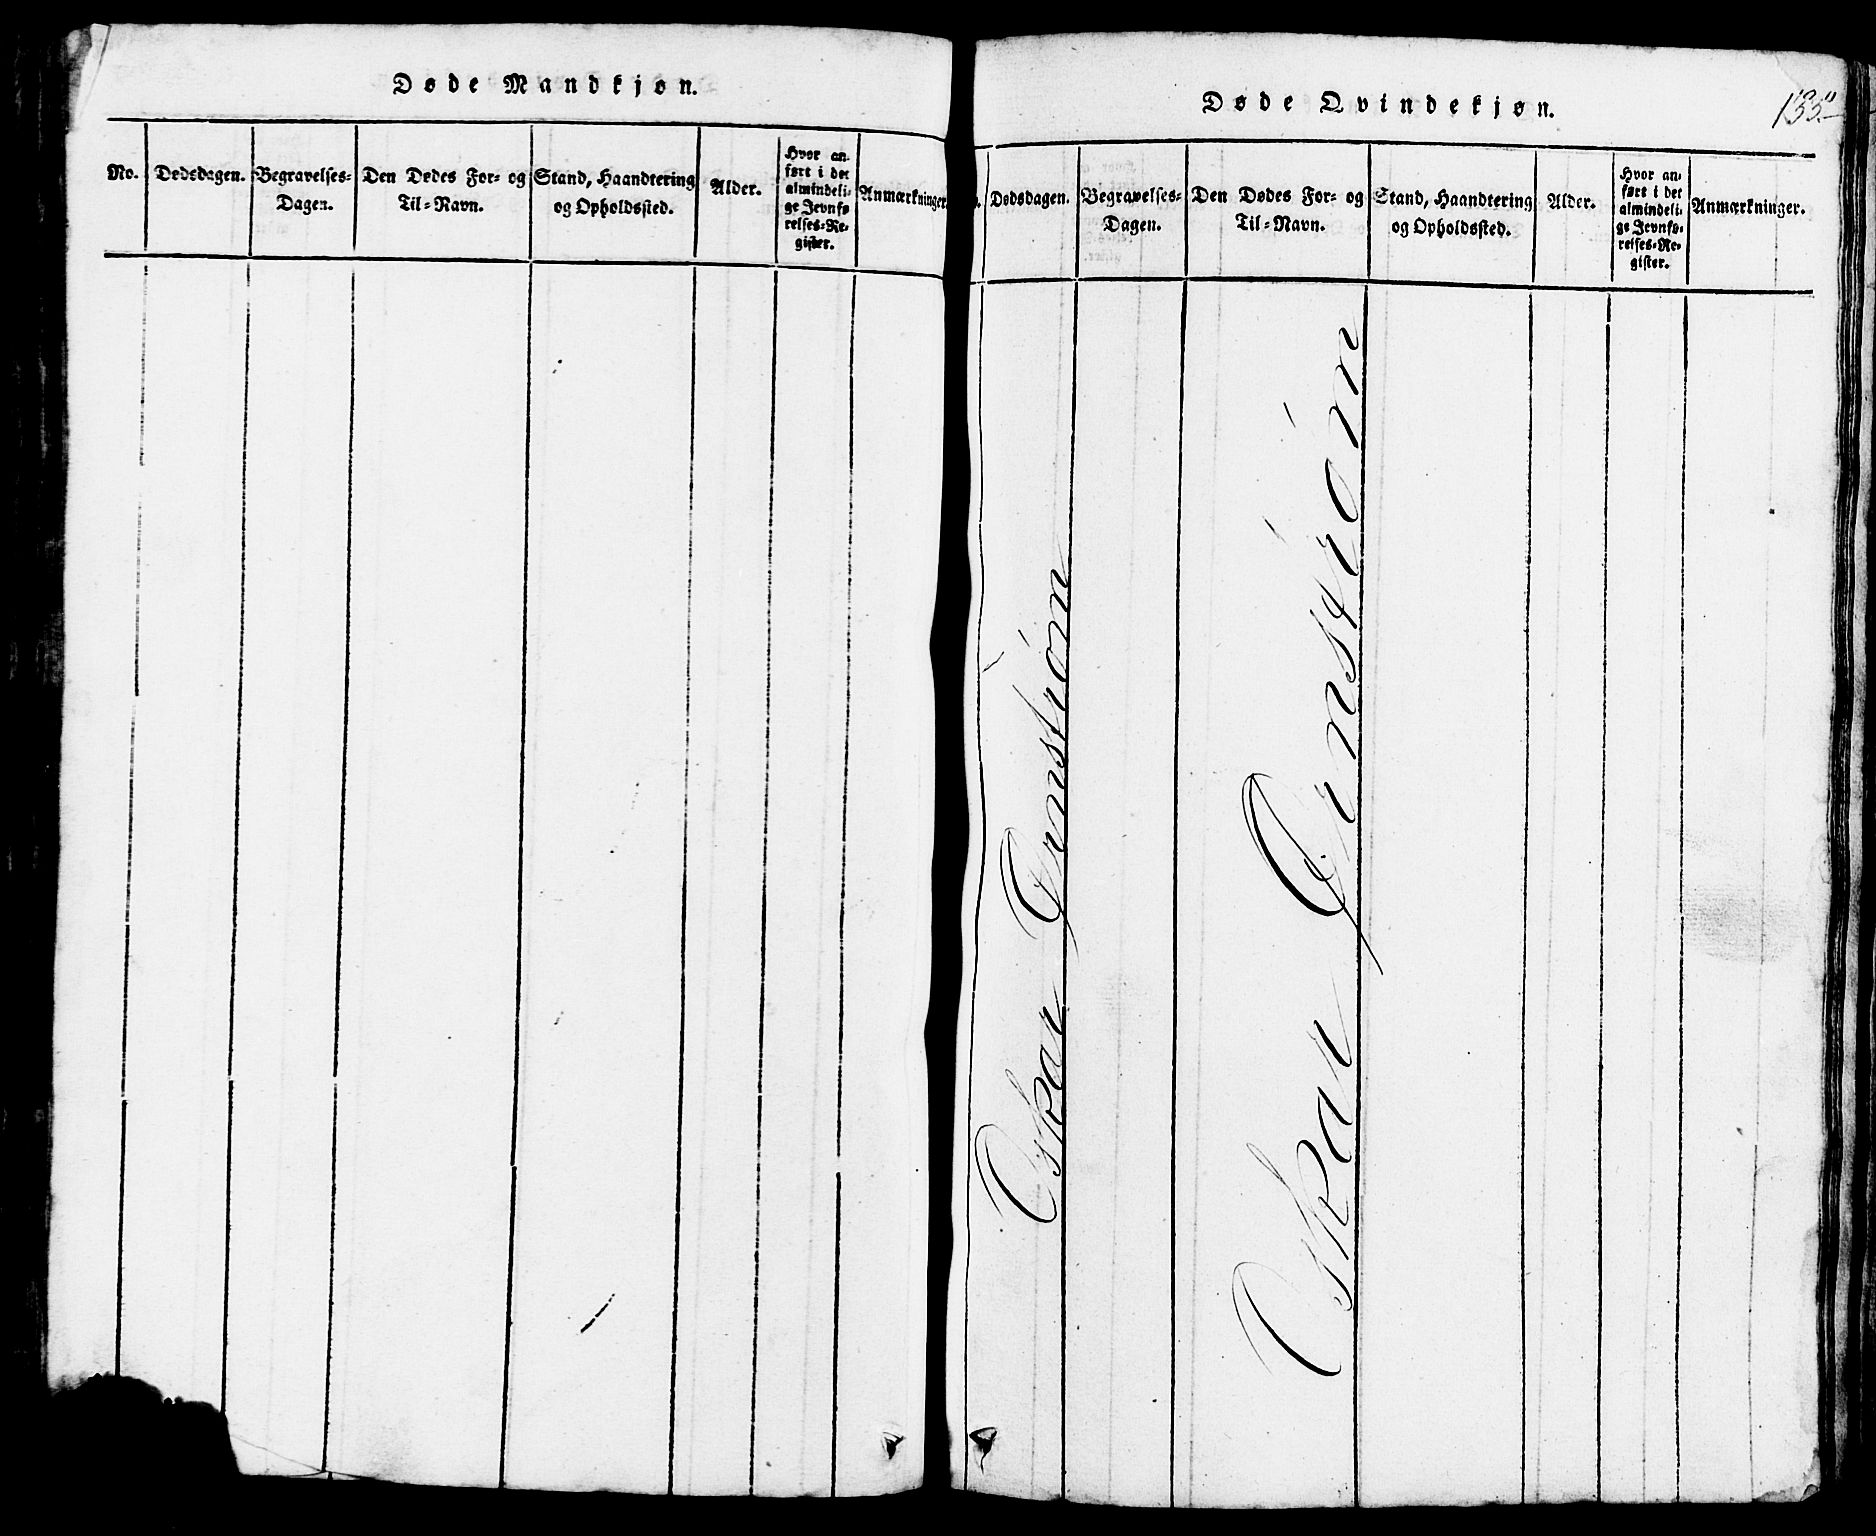 Døde Mandkjøn.
No.
Dødsdagen.
Begravelses-
Dagen.
Den Dødes For- og
Til-Navn.
Stand, Haandtering
og Opholdssted.
Alder.
Hvor an-
ført i det
almindeli-
ge Jevnfø-
relses-Re-
gister.
Anmærkninger.
Døde Qvindekjøn.
Dødsdagen.
Begravelses-
Dagen.
Den Dødes For- og
Til-Navn.
Stand, Haandtering
og Opholdssted.
Alder.
Hvor an-
ført i det
almindeli-
ge Jevnfø-
relses-Re-
gister.
Anmærkninger.
Oskar Ørnstrøm
Oskar Ørnstrøm